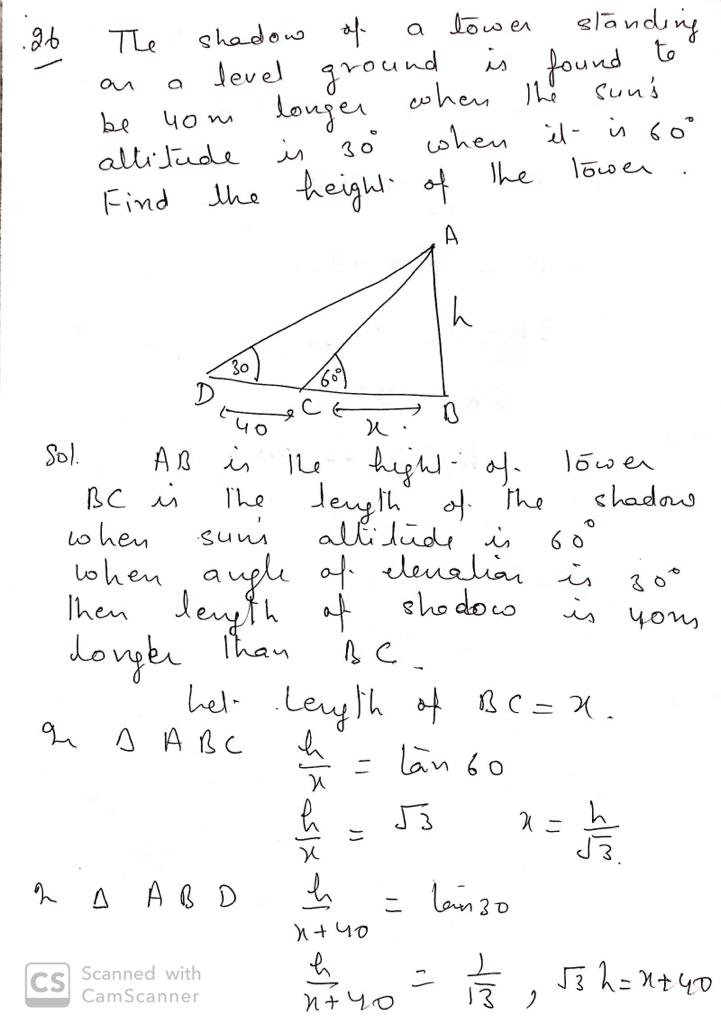 .26 The shadow of a tower standing
on a level ground is found to
be 40m longer when the sun's
altitude is 30° when it is 60°
Find the height of the tower.
A
h
30
60°
D
C
B
40
x.
Sol. AB is the hight of tower
BC is the length of the shadow
when sun's altitude is 60°
when angle of elevation is 30°
then length of shodow is 40m
longer than BC
Let Length of BC = x.
In Δ ABC h/x = tan 60
h/x = √3 x = h/√3.
In Δ ABD h/x+40 = tan 30
h/x+40 = 1/√3, √3 h = x+40
CS Scanned with
CamScanner